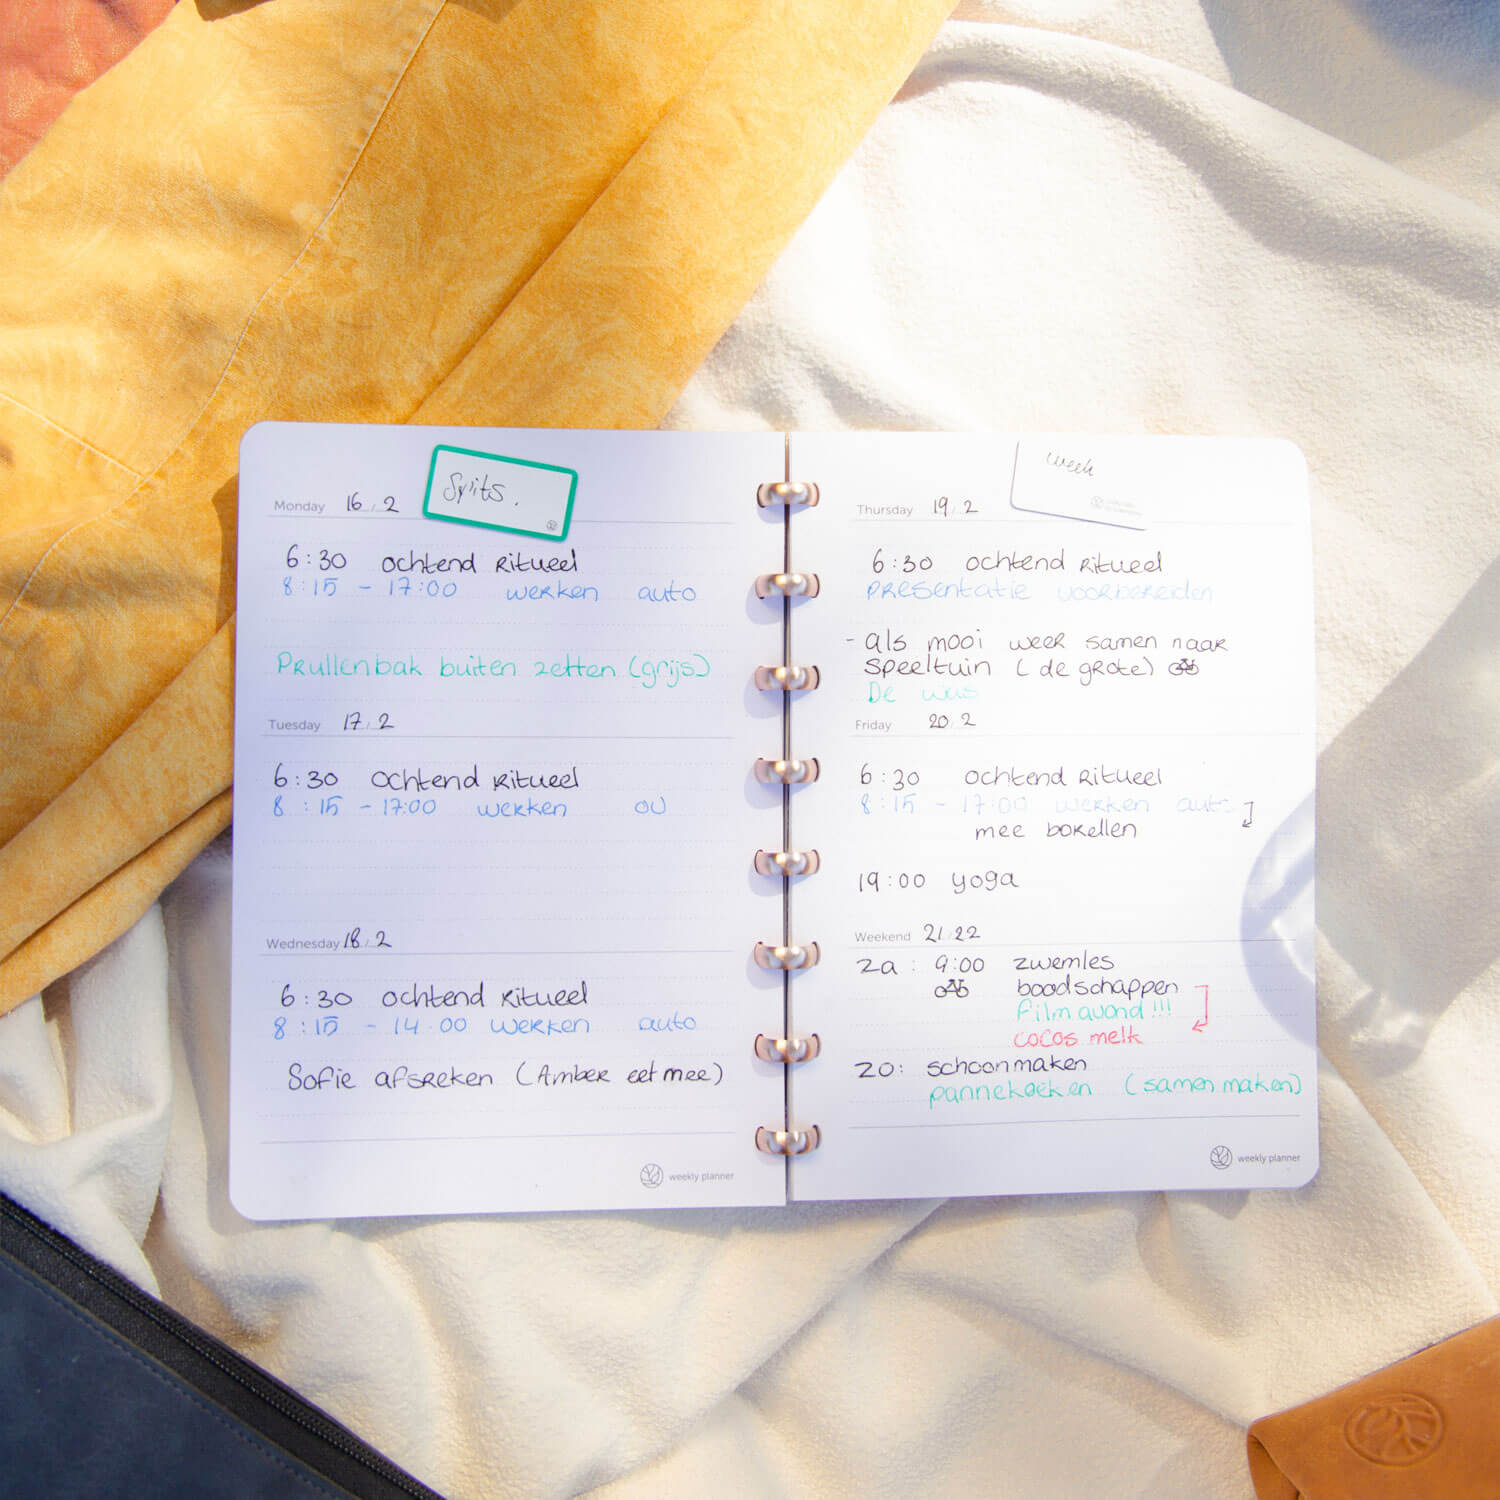 Monday 16/2
6:30 ochtend Ritueel
8:15 - 17:00 werken auto
Prullenbak buiten zetten (grijs)
Tuesday 17/2
6:30 ochtend Ritueel
8:15 - 17:00 werken OV
Wednesday 18/2
6:30 ochtend Ritueel
8:15 - 14:00 werken auto
Sofie afspreken (Amber eet mee)
weekly planner
week
Thursday 19/2
6:30 ochtend Ritueel
presentatie voorbereiden
- als mooi weer samen naar
speeltuin (de grote)
De was
Friday 20/2
6:30 ochtend Ritueel
8:15 - 17:00 werken auto
mee borrellen
19:00 yoga
Weekend 21/22
za: 9:00 zwemles
boodschappen
Filmavond!!!
cocos melk
zo: schoonmaken
pannekoeken (samen maken)
weekly planner